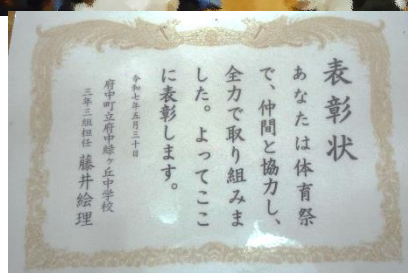 表彰状
あなたは体育祭
で、仲間と協力し、
全力で取り組みま
した。よってここ
に表彰します。
令和七年五月三十日
府中町立府中緑ヶ丘中学校
三年三組担任 藤井絵理